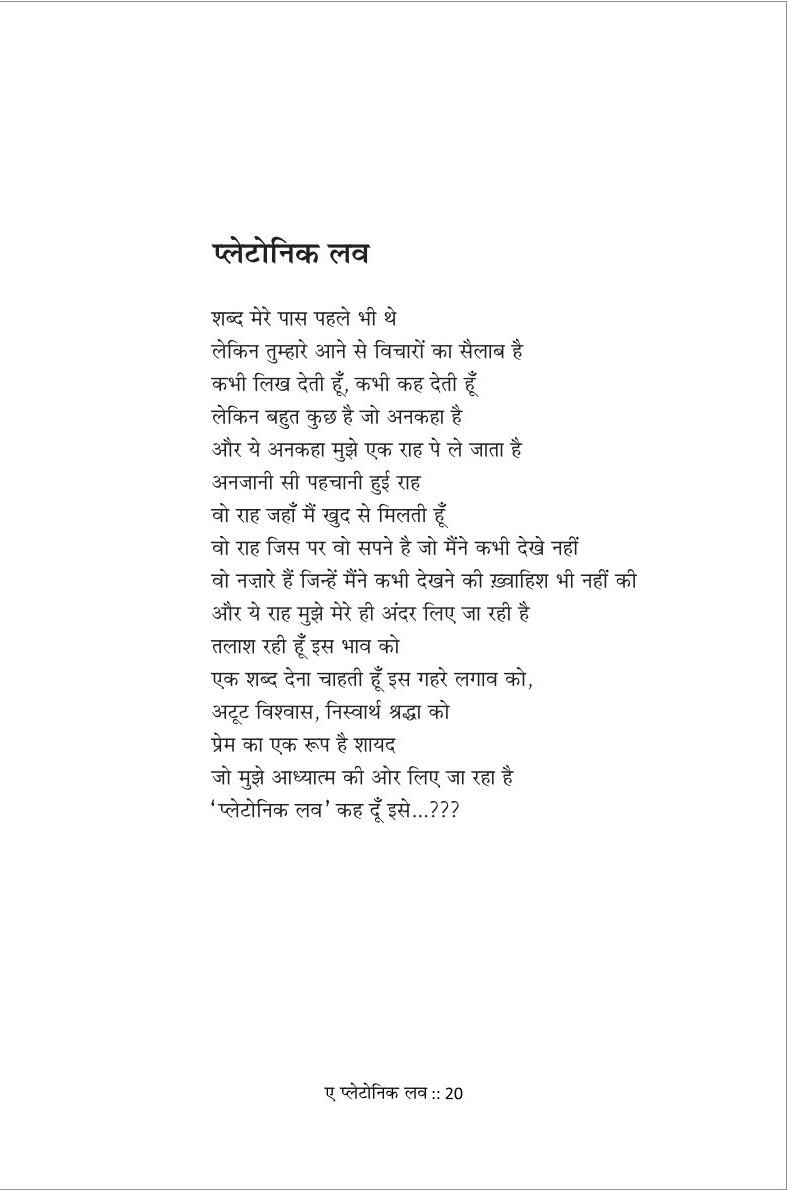 प्लेटोनिक लव
शब्द मेरे पास पहले भी थे
लेकिन तुम्हारे आने से विचारों का सैलाब है
कभी लिख देती हूँ, कभी कह देती हूँ
लेकिन बहुत कुछ है जो अनकहा है
और ये अनकहा मुझे एक राह पे ले जाता है
अनजानी सी पहचानी हुई राह
वो राह जहाँ मैं खुद से मिलती हूँ
वो राह जिस पर वो सपने है जो मैंने कभी देखे नहीं
वो नज़ारे हैं जिन्हें मैंने कभी देखने की ख़्वाहिश भी नहीं की
और ये राह मुझे मेरे ही अंदर लिए जा रही है
तलाश रही हूँ इस भाव को
एक शब्द देना चाहती हूँ इस गहरे लगाव को,
अटूट विश्वास, निस्वार्थ श्रद्धा को
प्रेम का एक रूप है शायद
जो मुझे आध्यात्म की ओर लिए जा रहा है
‘प्लेटोनिक लव’ कह दूँ इसे...???
ए प्लेटोनिक लव :: 20